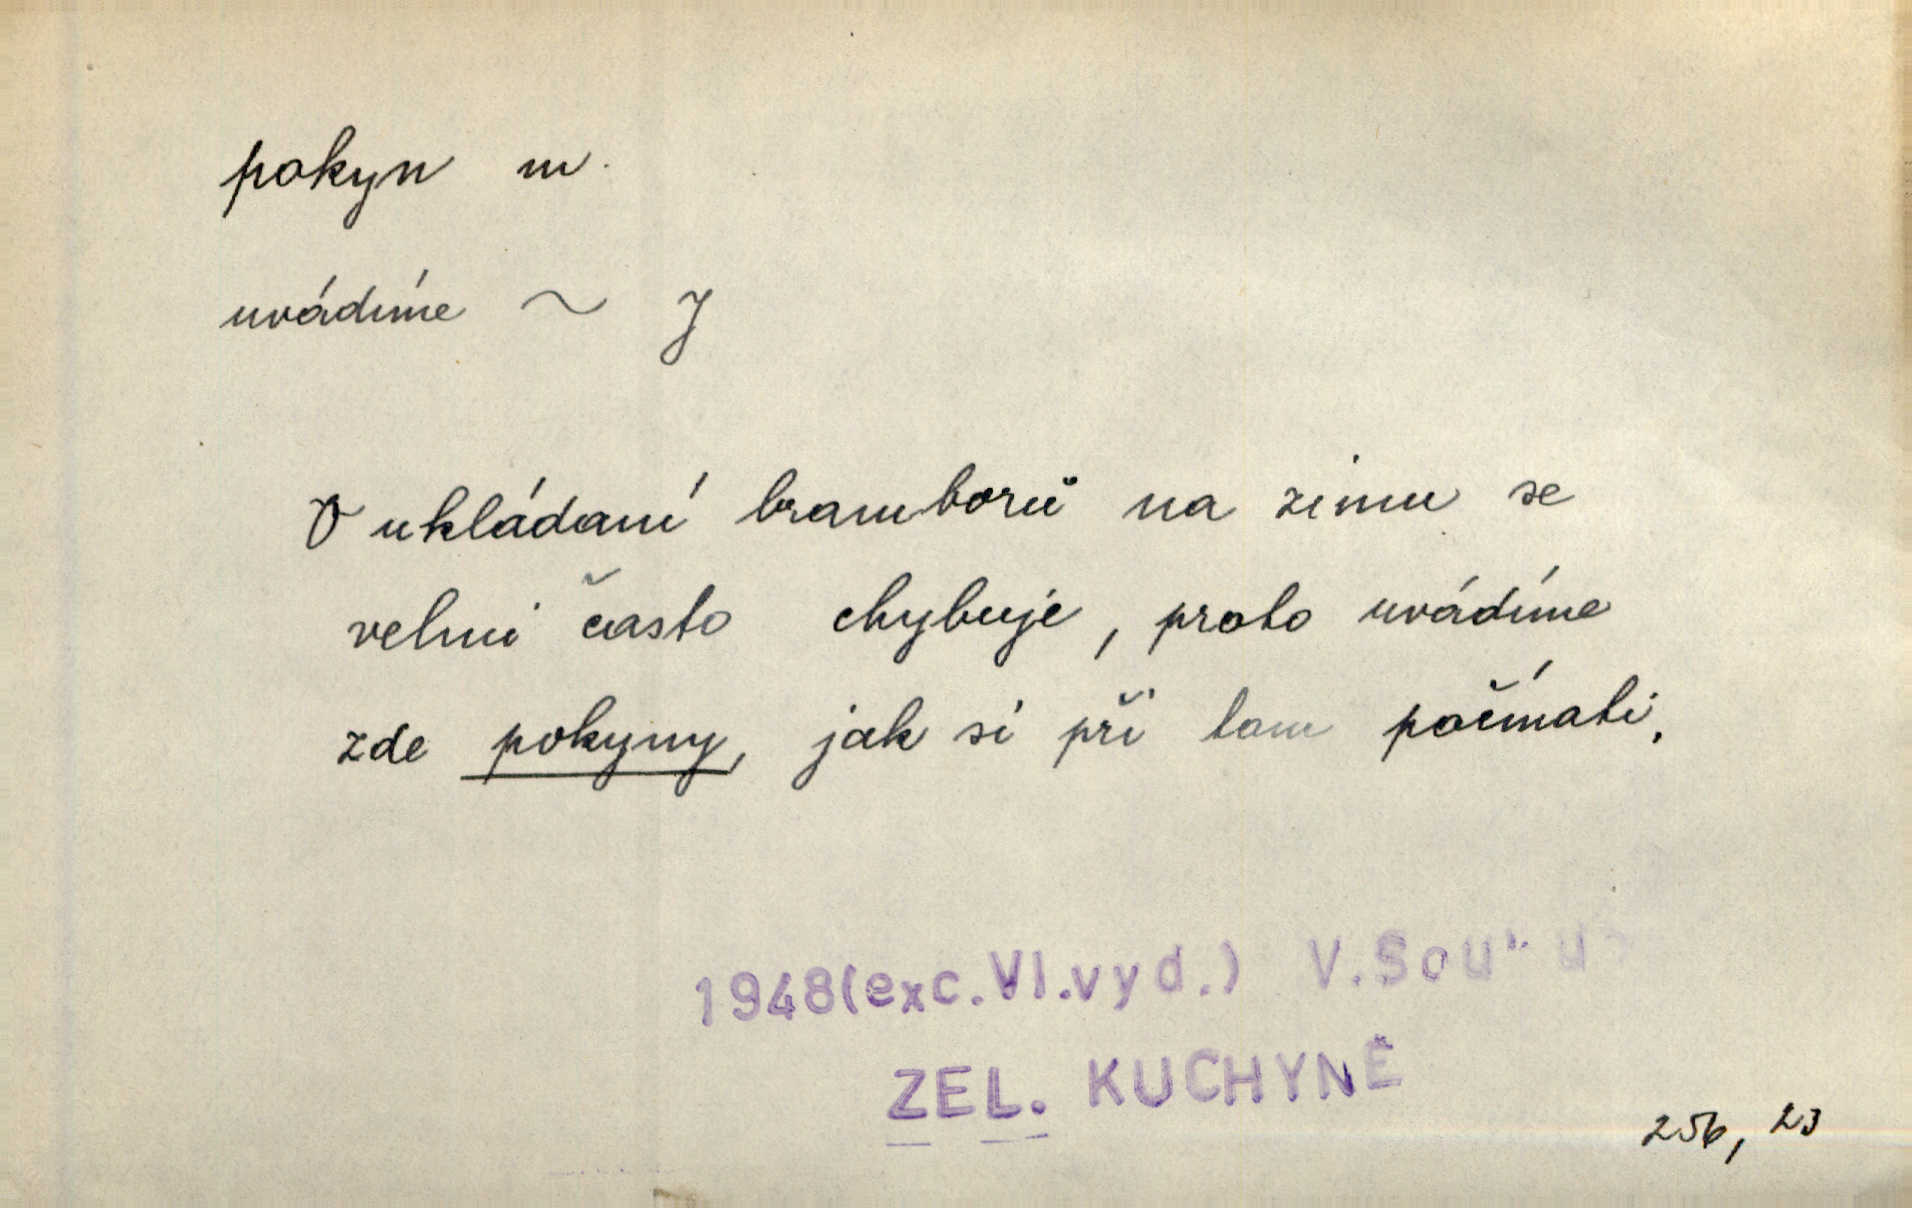 pokyn m.
uvádíme ~ y
V ukládaní bramborů na zimu se
velmi často chybuje, proto uvádíme
zde pokyny, jak si při tom počínati.
1948(exc.VI.vyd.) V.
ZEL. KUCHYNĚ
256, 23